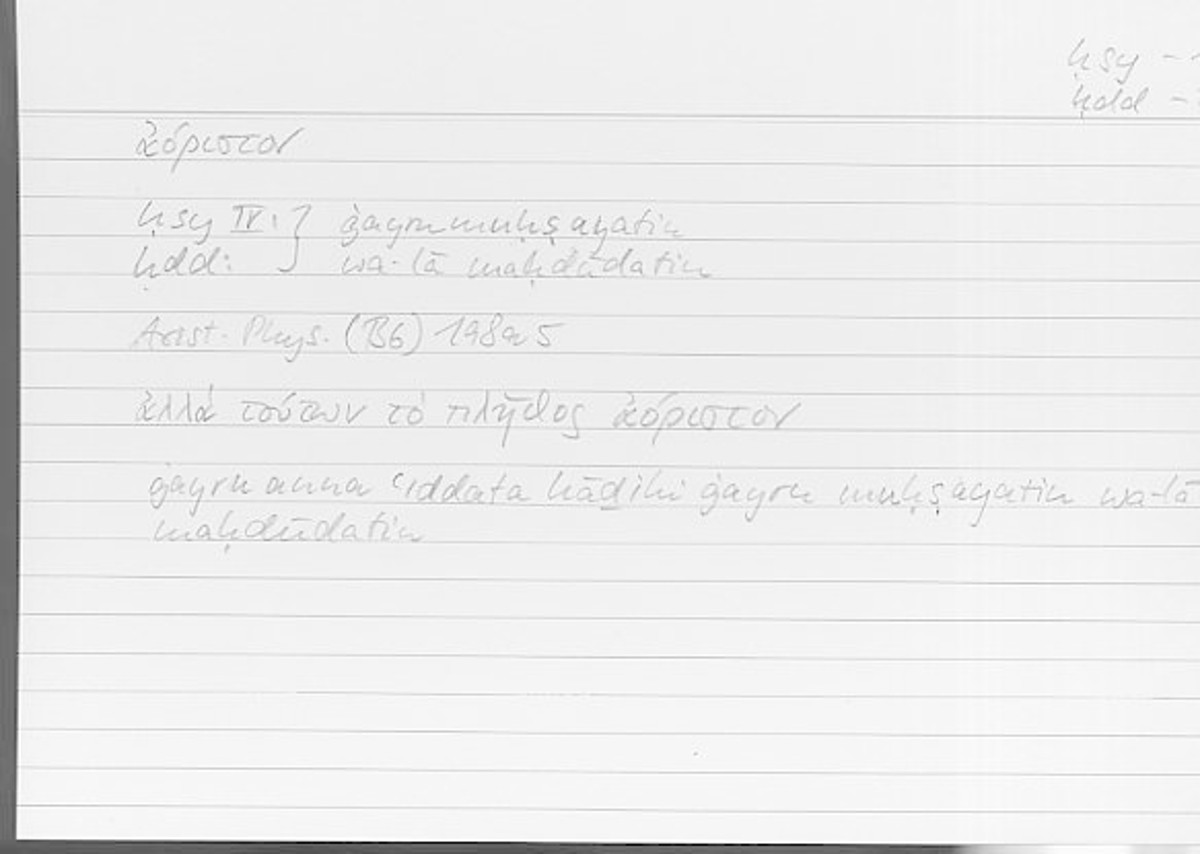 ḥsy -
ḥdd -
ἀόριστον
ḥsy IV: } ġayru muḥṣayatin
ḥdd: wa-lā maḥdūdatin
Arist. Phys. (B6) 198a5
ἀλλὰ τούτων τὸ πλῆθος ἀόριστον
ġayru anna ʿiddata hāḏihi ġayru muḥṣayatin wa-lā
maḥdūdatin